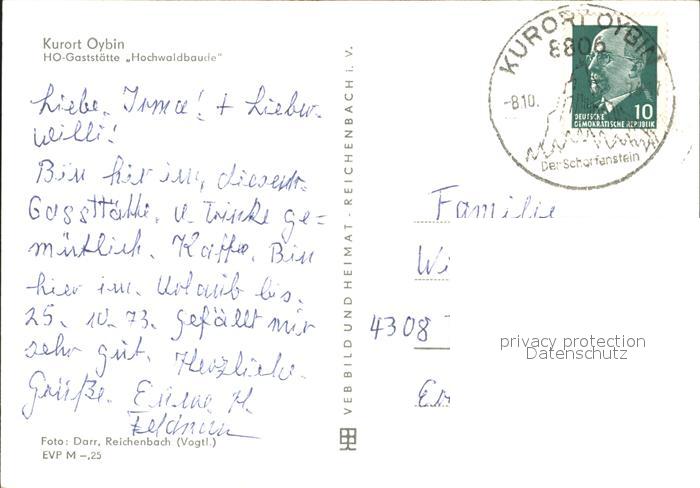 Kurort Oybin
HO-Gaststätte „Hochwaldbaude"
Liebe Irma! + Lieber
Willi!
Bin hier im, diesem
Gasstätte. u. Trinke ge=
mütlich. Kaffe. Bin
hier im. Urlaub bis.
25. 10. 73. gefällt mir
sehr gut. Herzliche.
Grüße. H.
Foto: Darr, Reichenbach (Vogtl.)
EVP M –,25
VEB BILD UND HEIMAT · REICHENBACH i. V.
KURORT OYBIN
8806
-8.10.
Der Scharfenstein
10
DEUTSCHE
DEMOKRATISCHE REPUBLIK
Familie
Wi
4308
privacy protection
Datenschutz